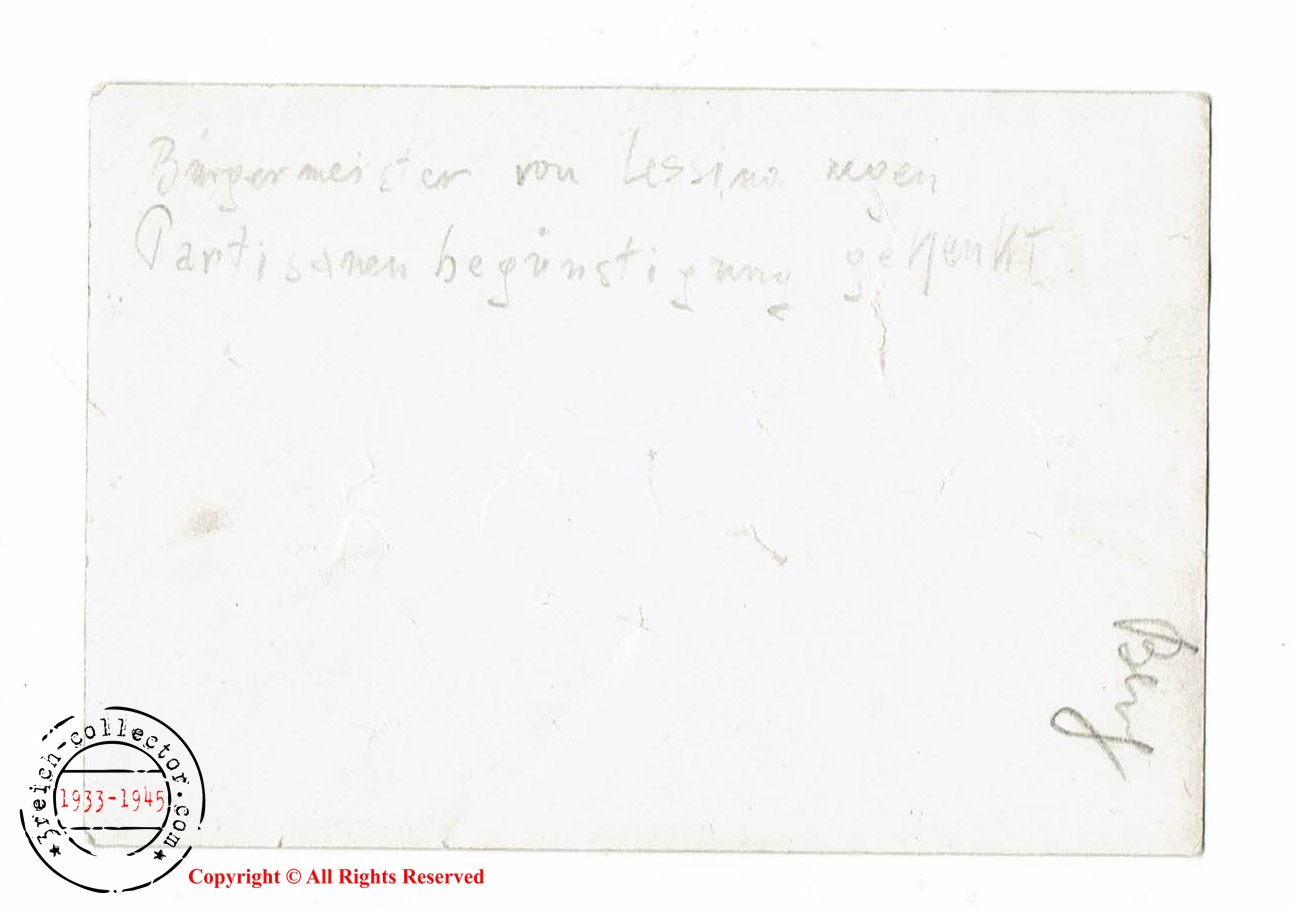 Bürgermeister von Lessina wegen
Partisanenbegünstigung gehenkt.
3reich-collector.com
1933-1945
Copyright © All Rights Reserved